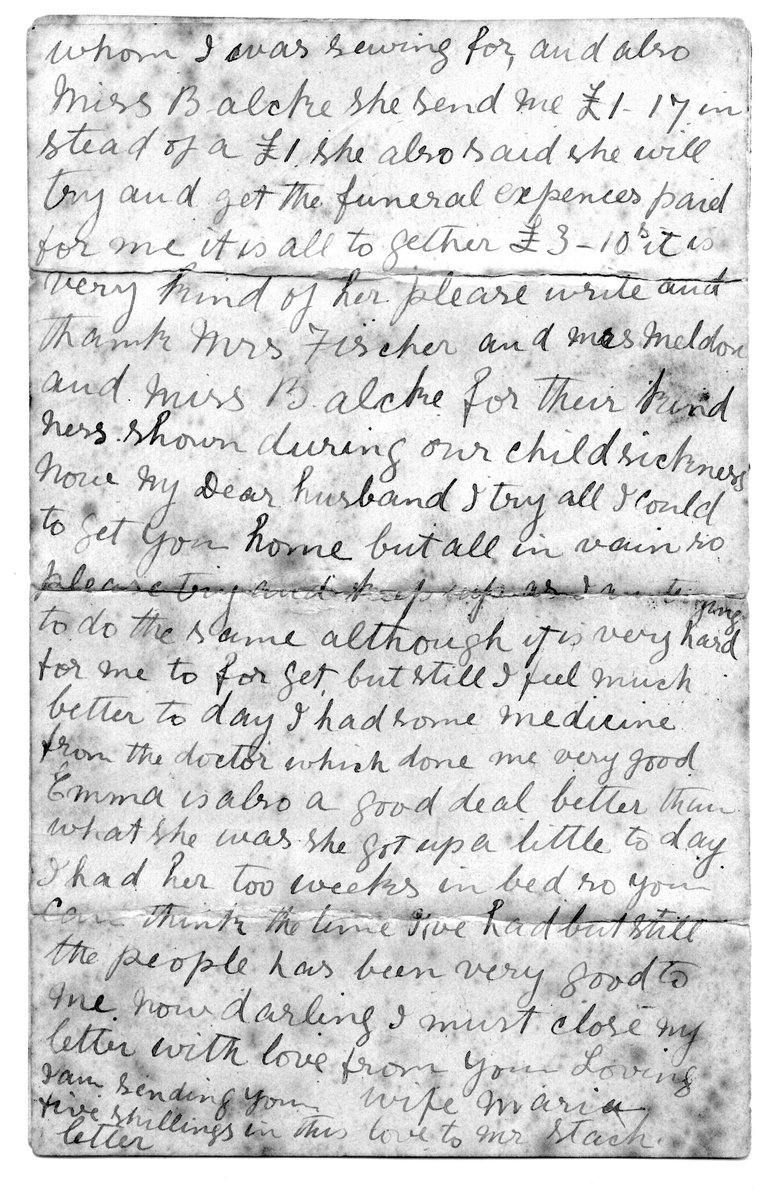 whom I was sewing for, and also
Miss Balcke she send me £1-17 in
stead of a £1 she also said she will
try and get the funeral expences paid
for me it is all to gether £3-10s it is
very kind of her please write and
thank Mrs Fischer and mrs Meldon
and Miss Balcke for their kind
ness shown during our child sickness
Now My Dear husband I try all I could
to get you home but all in vain so
please try and keep up as I am trying
to do the same although it is very hard
for me to for get but still I feel much
better to day I had some medicine
from the doctor which done me very good
Emma is also a good deal better than
what she was she got up a little to day
I had her too weeks in bed so you
can think the time I've had but still
the people has been very good to
me. Now darling I must close my
letter with love from your Loving
wife Maria
I am sending you
five shillings in this
letter
love to Mr Stach.